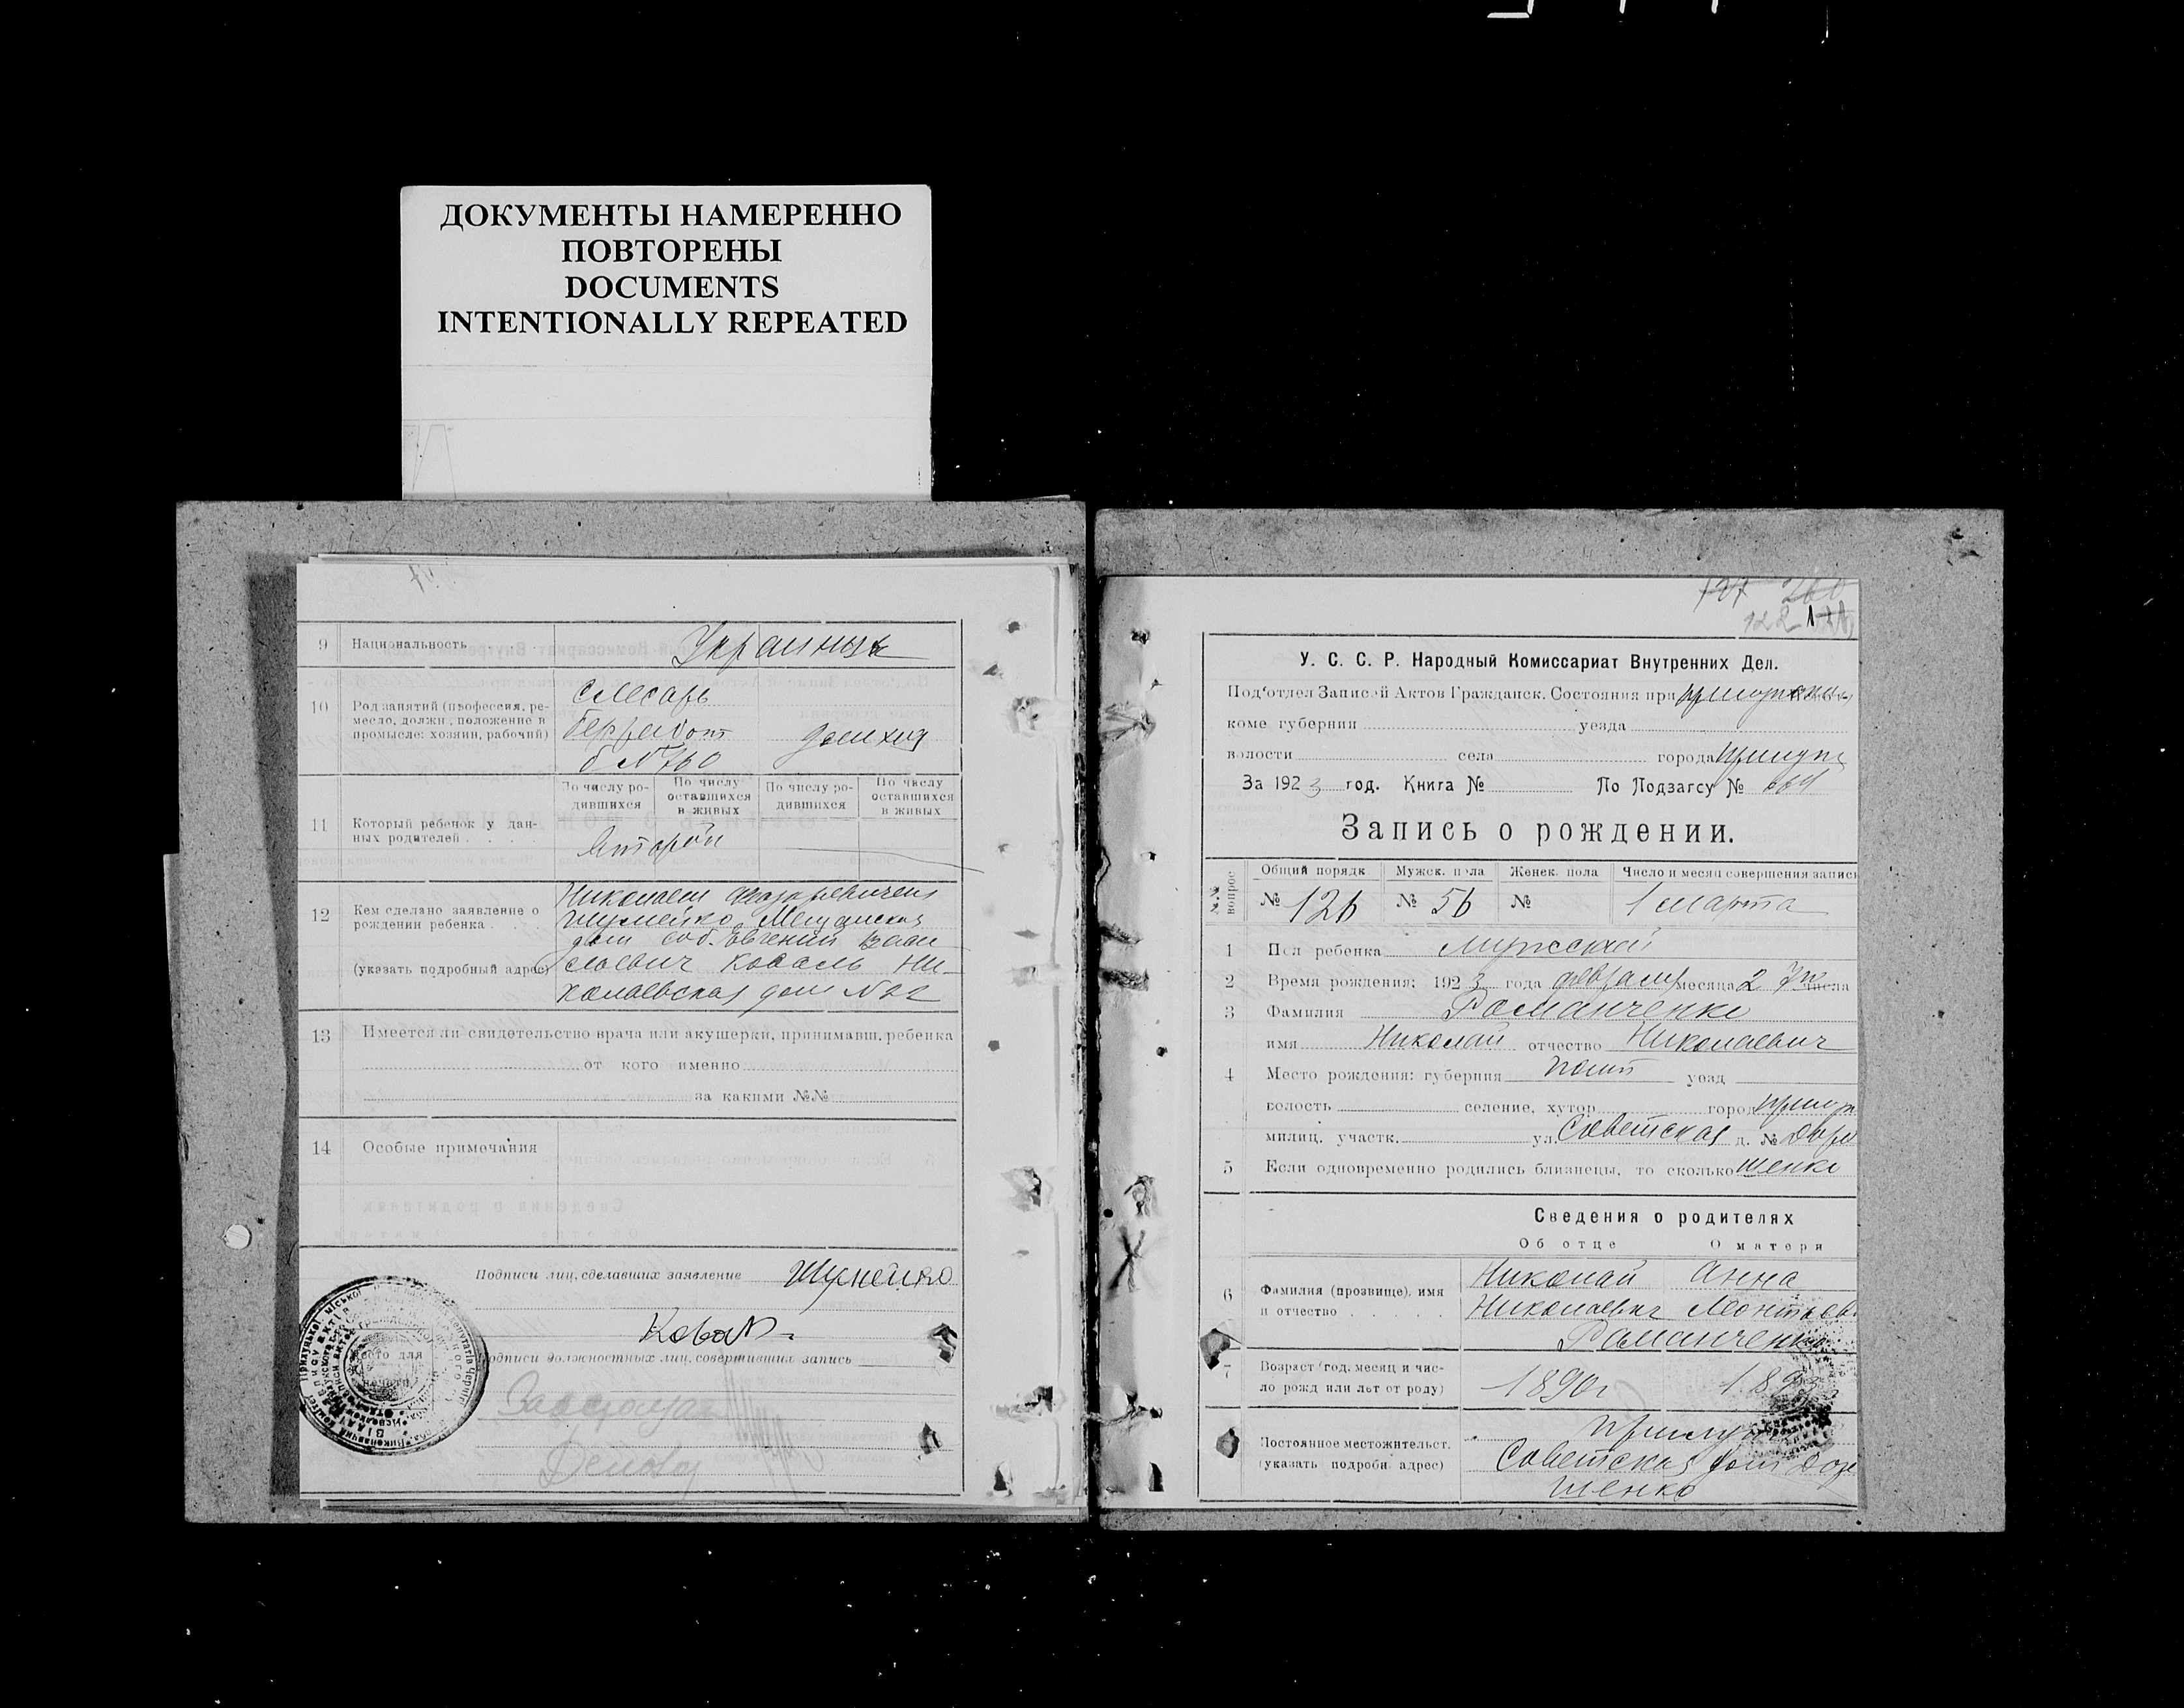 ДОКУМЕНТЫ НАМЕРЕННО
ПОВТОРЕНЫ
DOCUMENTS
INTENTIONALLY REPEATED
9 Национальность
10 Род занятий (профессия, ре-
месло, должн., положение в
промысле: хозяин, рабочий)
слесарь
домхоз
11 Который ребенок у дан-
ных родителей . . . .
По числу ро-
дившихся
По числу
оставшихся
в живых
По числу ро-
дившихся
По числу
оставшихся
в живых
Второй
12 Кем сделано заявление о
рождении ребенка . . .
(указать подробный адрес)
Николаем
Шумейко
дом соб. Евгений Васи
лиевич Коваль Ни-
колаевская дом № 22
13 Имеется ли свидетельство врача или акушерки, принимавш. ребенка
от кого именно
за какими №№
14 Особые примечания
Подписи лиц, сделавших заявление Шумейко
Коваль
Подписи должностных лиц, совершивших запись
место для
печати
У. С. С. Р. Народный Комиссариат Внутренних Дел.
Под'отдел Записей Актов Гражданск. Состояния при
коме губернии уезда
волости села города
За 1923 год. Книга № По Подзагсу №
Запись о рождении.
№№ вопрос
Общий порядк
Мужск. пола
Женск. пола
Число и месяц совершения записи
№ 126 № 56 № 1 марта
1 Пол ребенка мужской
2 Время рождения: 1923 года февраля месяца 27 числа
3 Фамилия Романченко
имя Николай отчество Николаевич
4 Место рождения: губерния Полт уезд
волость селение, хутор город
милиц. участк. ул. Советская д. №
5 Если одновременно родились близнецы, то сколько шенко
Сведения о родителях
Об отце О матери
6 Фамилия (прозвище), имя
и отчество . . . . .
Николай Анна
Николаевич Леонтьев
Романченко
7 Возраст (год, месяц и чис-
ло рожд или лет от роду)
1890 г 1893
Постоянное местожительст.
(указать подробн. адрес)
Советская дом
шенко